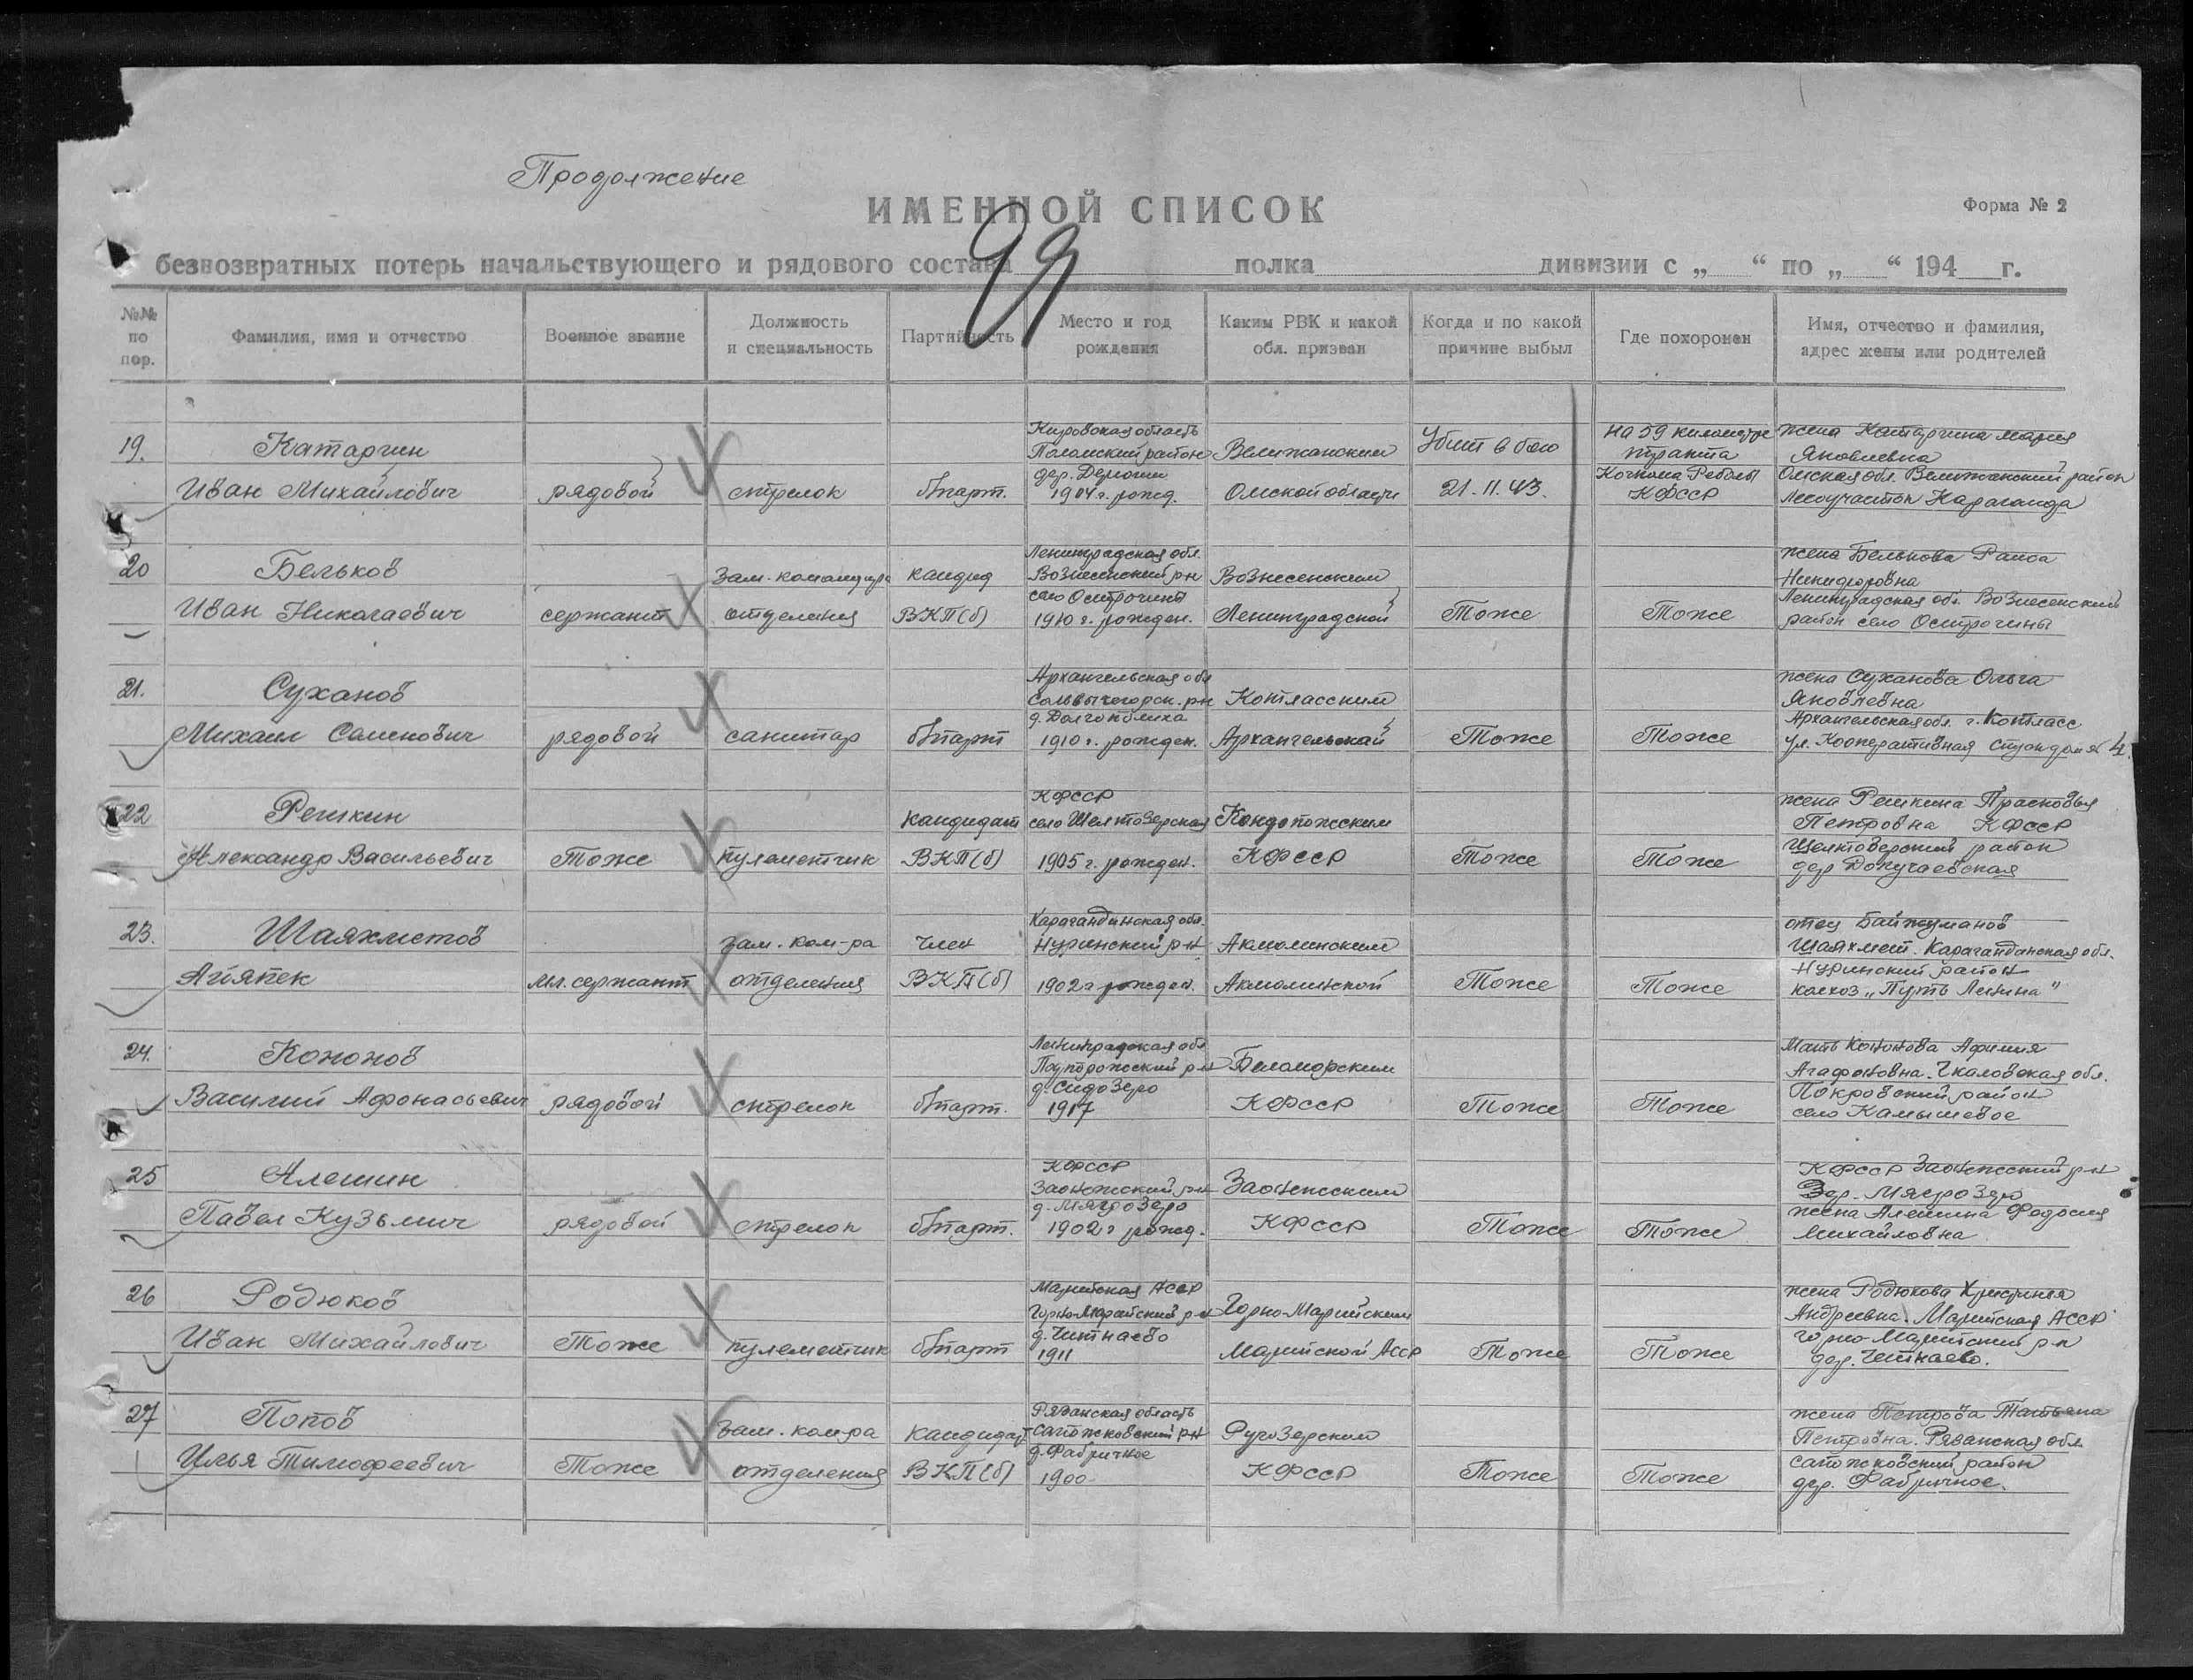 Продолжение
ИМЕННОЙ СПИСОК
Форма № 2
безвозвратных потерь начальствующего и рядового состава полка дивизии с „ “ по „ “ 194 г.
29
№№ по пор.
Фамилия, имя и отчество
Военное звание
Должность и специальность
Партийность
Место и год рождения
Каким РВК и какой обл. призван
Когда и по какой причине выбыл
Где похоронен
Имя, отчество и фамилия, адрес жены или родителей
19.
Катаргин
Иван Михайлович
рядовой
стрелок
б/парт.
Кировская область
район
дер.
1904 г. рожд.
Велижанским
Омской области
Убит в бою
21.11.43.
На 59 километре
тракта
Кочкома Реболы
КФССР
жена Катаргина Мария
Яковлевна
Омская обл. Велижанский район
лесоучасток Караганда
20
Бельков
Иван Николаевич
сержант
зам. командира
отделения
кандид
ВКП(б)
Ленинградская обл.
Вознесенский рн
село Острочины
1910 г. рожден.
Вознесенским
Ленинградской
Тоже
Тоже
жена Белькова Раиса
Никифоровна
Ленинградская обл. Вознесенский
район село Острочины
21.
Суханов
Михаил Семенович
рядовой
санитар
б/парт
Архангельская обл
Сольвычегорск. рн
д.
1910 г. рожден.
Котласским
Архангельской
Тоже
Тоже
жена Суханова Ольга
Яковлевна
Архангельская обл. г. Котласс
ул. Кооперативная 4.
22
Решкин
Александр Васильевич
Тоже
пулеметчик
кандидат
ВКП(б)
КФССР
село Шелтозерская
1905 г. рожден.
Кондопожским
КФССР
Тоже
Тоже
жена Решкина Прасковья
Петровна КФССР
Шелтозерский район
дер Докучаевская
23.
Шаяхметов
Агяпек
мл. сержант
зам. ком-ра
отделения
член
ВКП(б)
Карагандинская обл.
Нуринский рн
1902 г рожден.
Акмолинским
Акмолинской
Тоже
Тоже
отец Байжуманов
Шаяхмет. Карагандинская обл.
Нуринский район
колхоз „Путь Ленина"
24.
Кононов
Василий Афонасьевич
рядовой
стрелок
б/парт.
Ленинградская обл
Подпорожский рн
д. Сидозеро
1917
Беломорским
КФССР
Тоже
Тоже
Мать Кононова Афимия
Агафоновна. Чкаловская обл.
Покровский район
село Камышевое
25
Алешин
Павел Кузьмич
рядовой
стрелок
б/парт.
КФССР
Заонежский рн
д. Мягрозеро
1902 г рожд.
Заонежским
КФССР
Тоже
Тоже
КФССР Заонежский рн
дер. Мягрозеро
жена Алешина Федосия
Михайловна
26
Родюков
Иван Михайлович
Тоже
пулеметчик
б/парт
Марийская АССР
Горно-Марийский рн
д. Читнаево
1911
Горно-Марийским
Марийской АССР
Тоже
Тоже
жена Родюкова
Андреевна. Марийская АССР
Горно-Марийский рн
дер. Читнаево.
27
Попов
Илья Тимофеевич
Тоже
зам. ком-ра
отделения
кандидат
ВКП(б)
Рязанская область
Сапожковский рн
д. Фабричное
1900
Ругозерским
КФССР
Тоже
Тоже
жена Петрова Татьяна
Петровна. Рязанская обл.
Сапожковский район
дер. Фабричное.